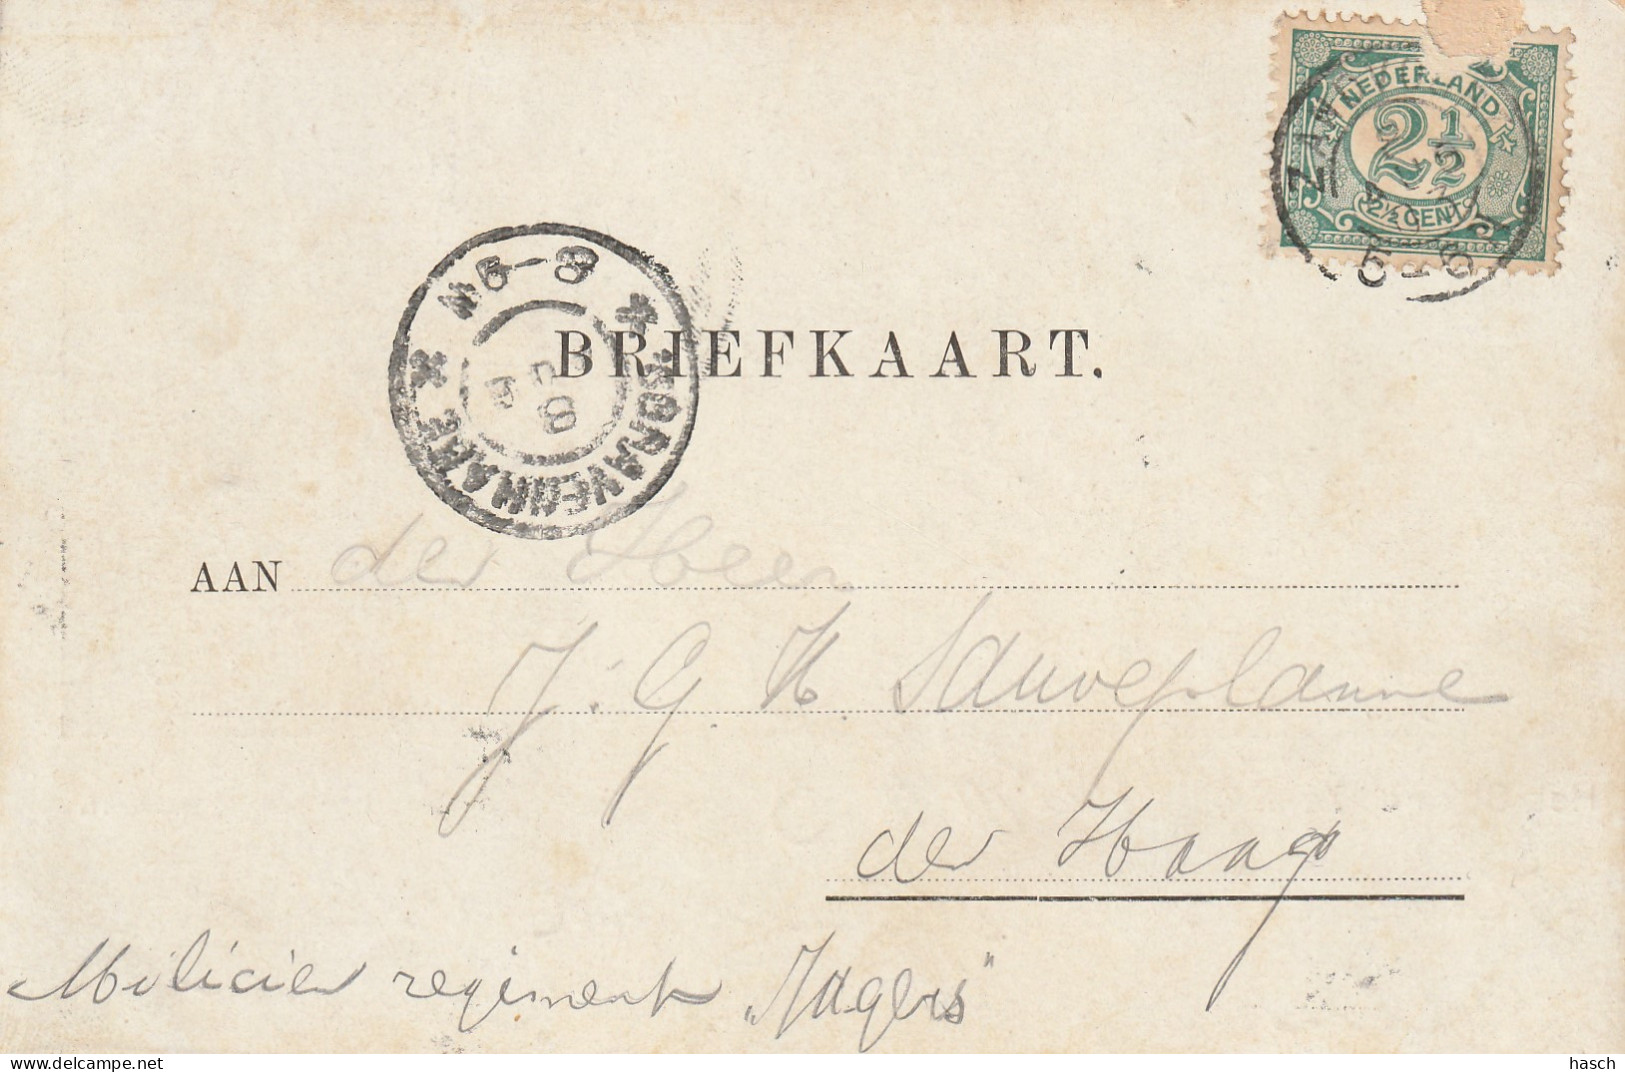 NEDERLAND
2½
2½ CENT
5-8
'SGRAVENHAGE
BRIEFKAART.
AAN der Heer
J. G. H. Sauveplanne
der Haag
Milicien regiment „Jagers"
www.delcampe.net
hasch